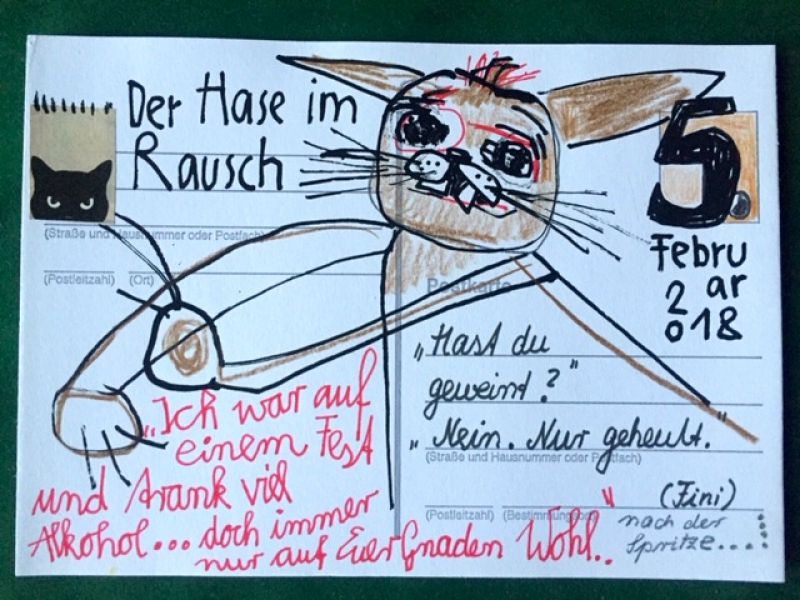 Der Hase im
Rausch
5.
Februar
2018
(Straße und Hausnummer oder Postfach)
(Postleitzahl) (Ort)
Postkarte
„Hast du
geweint?"
„Nein. Nur geheult."
(Straße und Hausnummer oder Postfach)
(Postleitzahl) (Bestimmungsort)
(Fini)
nach der
Spritze....
„Ich war auf
einem Fest
und trank viel
Alkohol... doch immer
nur auf Euer Gnaden Wohl.."